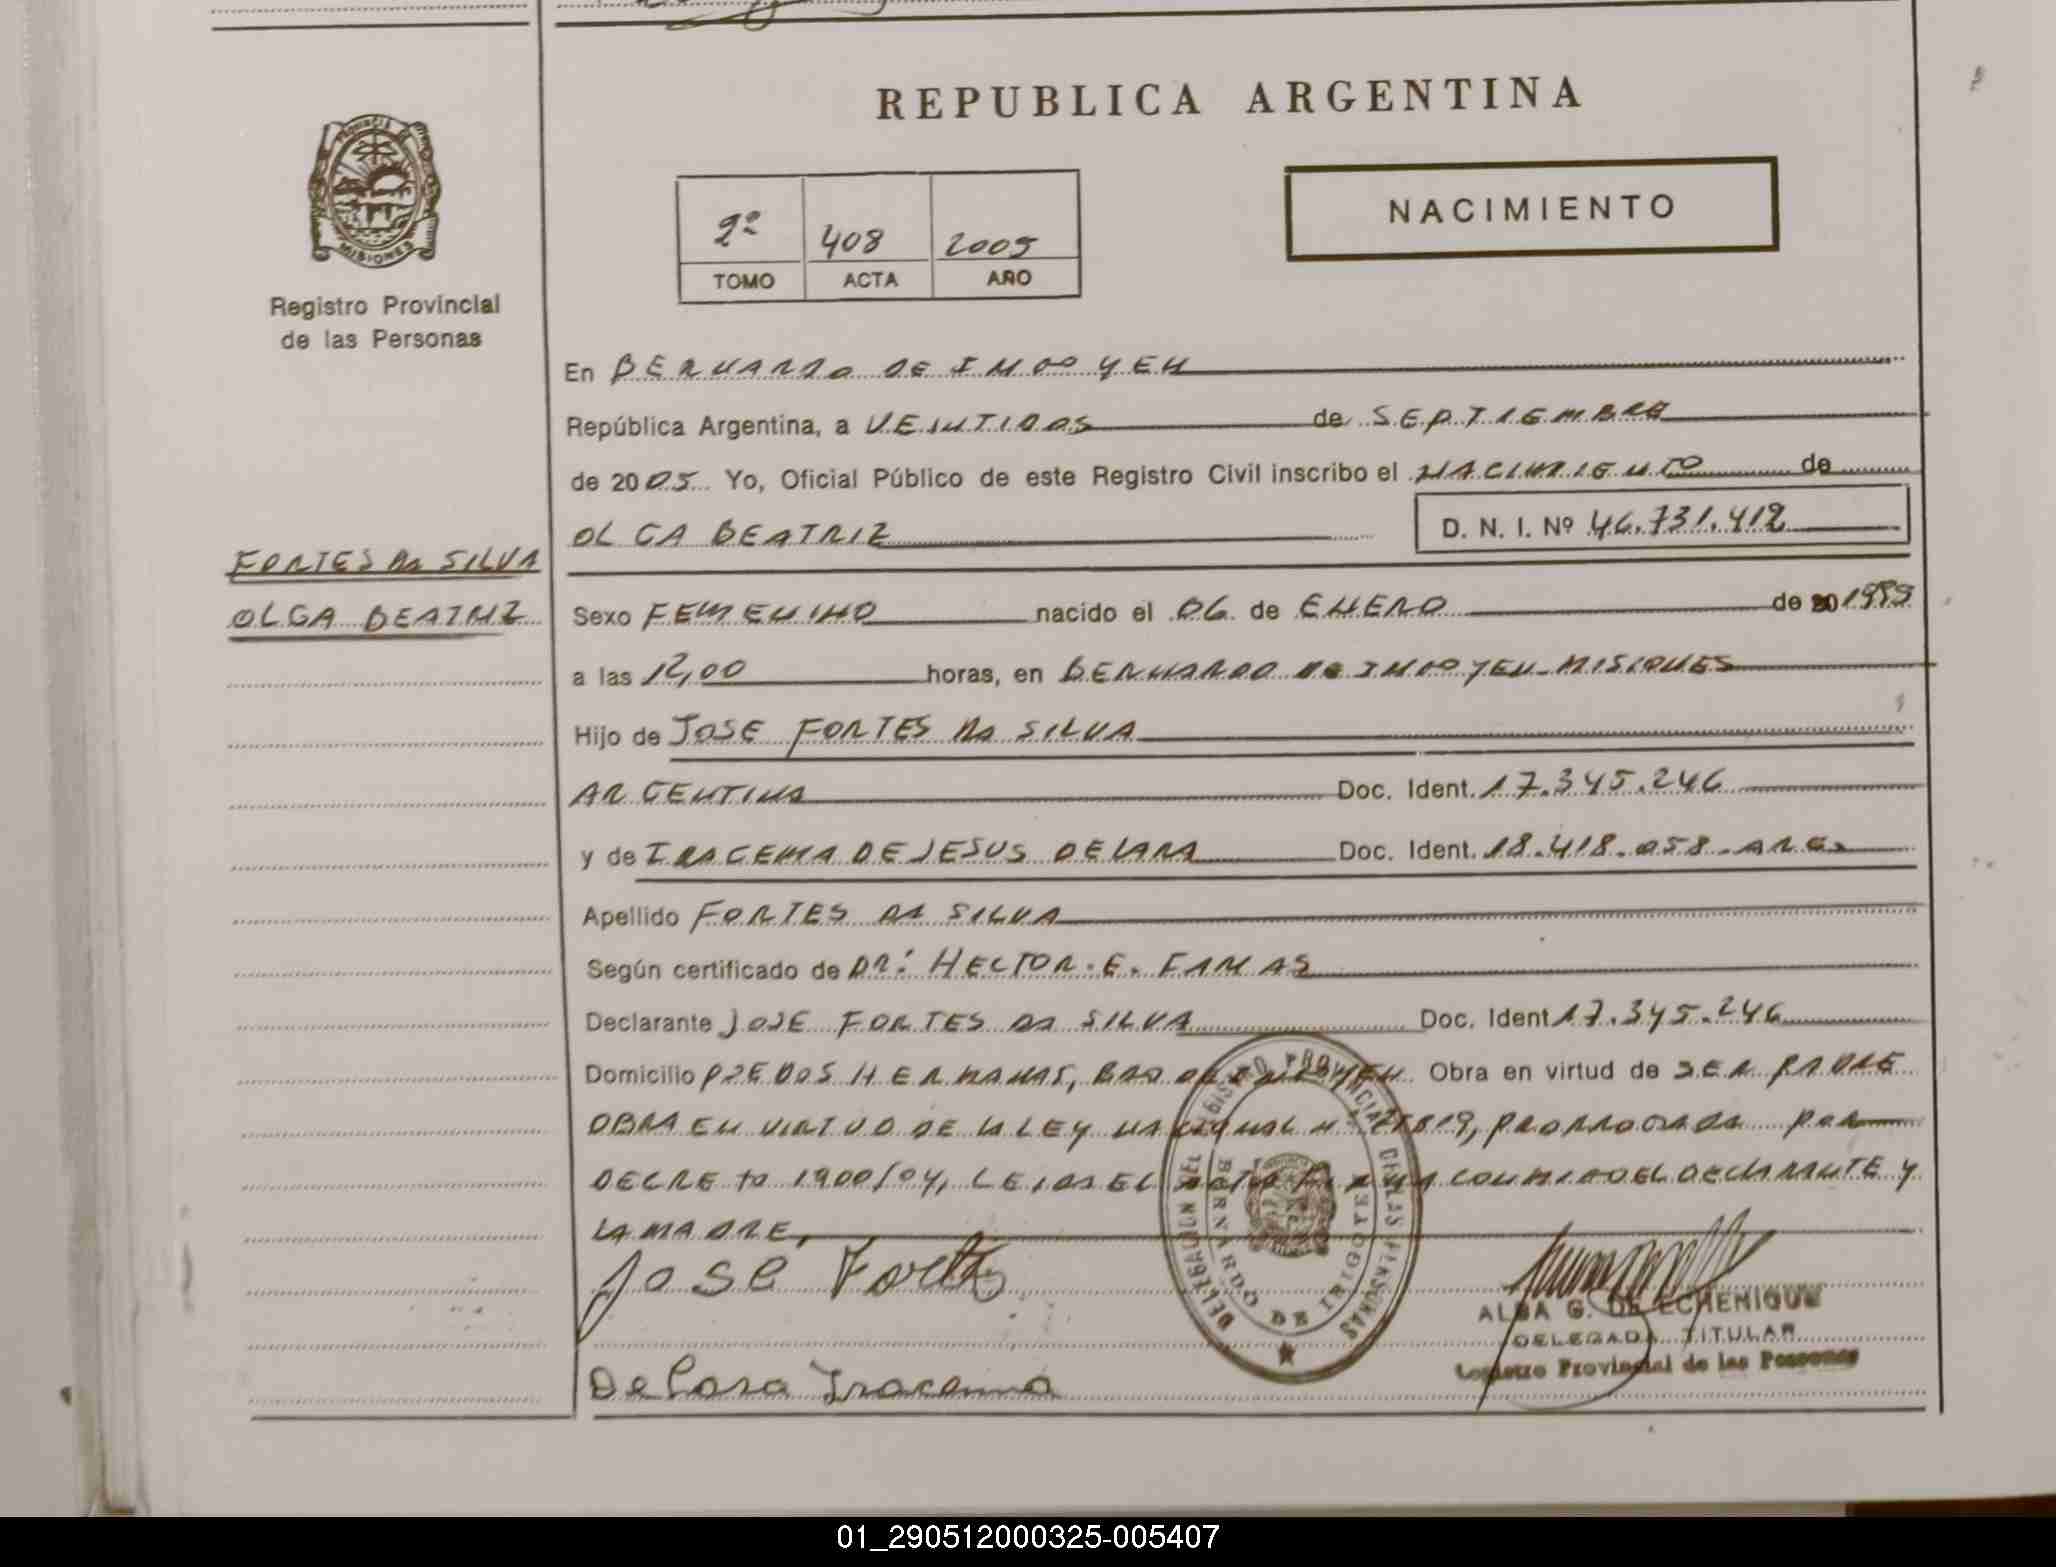 REPUBLICA ARGENTINA
PROVINCIA DE MISIONES
Registro Provincial
de las Personas
NACIMIENTO
2º 408 2005
TOMO ACTA AÑO
En BERNARDO DE IRIGOYEN
República Argentina, a VEINTIDOS de SEPTIEMBRE
de 2005 Yo, Oficial Público de este Registro Civil inscribo el NACIMIENTO de
OLGA BEATRIZ D. N. I. Nº 46.731.412
FORTES DA SILVA
OLGA BEATRIZ
Sexo FEMENINO nacido el 06 de ENERO de 20
a las 12,00 horas, en BERNARDO DE IRIGOYEN - MISIONES
Hijo de JOSE FORTES DA SILVA
ARGENTINA Doc. Ident. 17.345.246
y de IRACEMA DE JESUS DE LARA Doc. Ident. 18.418.058 - ARG.
Apellido FORTES DA SILVA
Según certificado de DR: HECTOR E. FARIAS
Declarante JOSE FORTES DA SILVA Doc. Ident 17.345.246
Domicilio PJE DOS HERMANAS, BDO DE IRIGOYEN Obra en virtud de SER PADRE
OBRA EN VIRTUD DE LA LEY NACIONAL Nº 25819, PRORROGADA POR
DECRETO 1900/04, LEIDA EL ACTA FIRMA CONMIGO EL DECLARANTE Y
LA MADRE,
Jose Fortes
De Lara Iracema
DELEGACION DEL REGISTRO PROVINCIAL DE LAS PERSONAS
BERNARDO DE IRIGOYEN
ALBA G. DE ECHENIQUE
DELEGADA TITULAR
Registro Provincial de las Personas
01_290512000325-005407